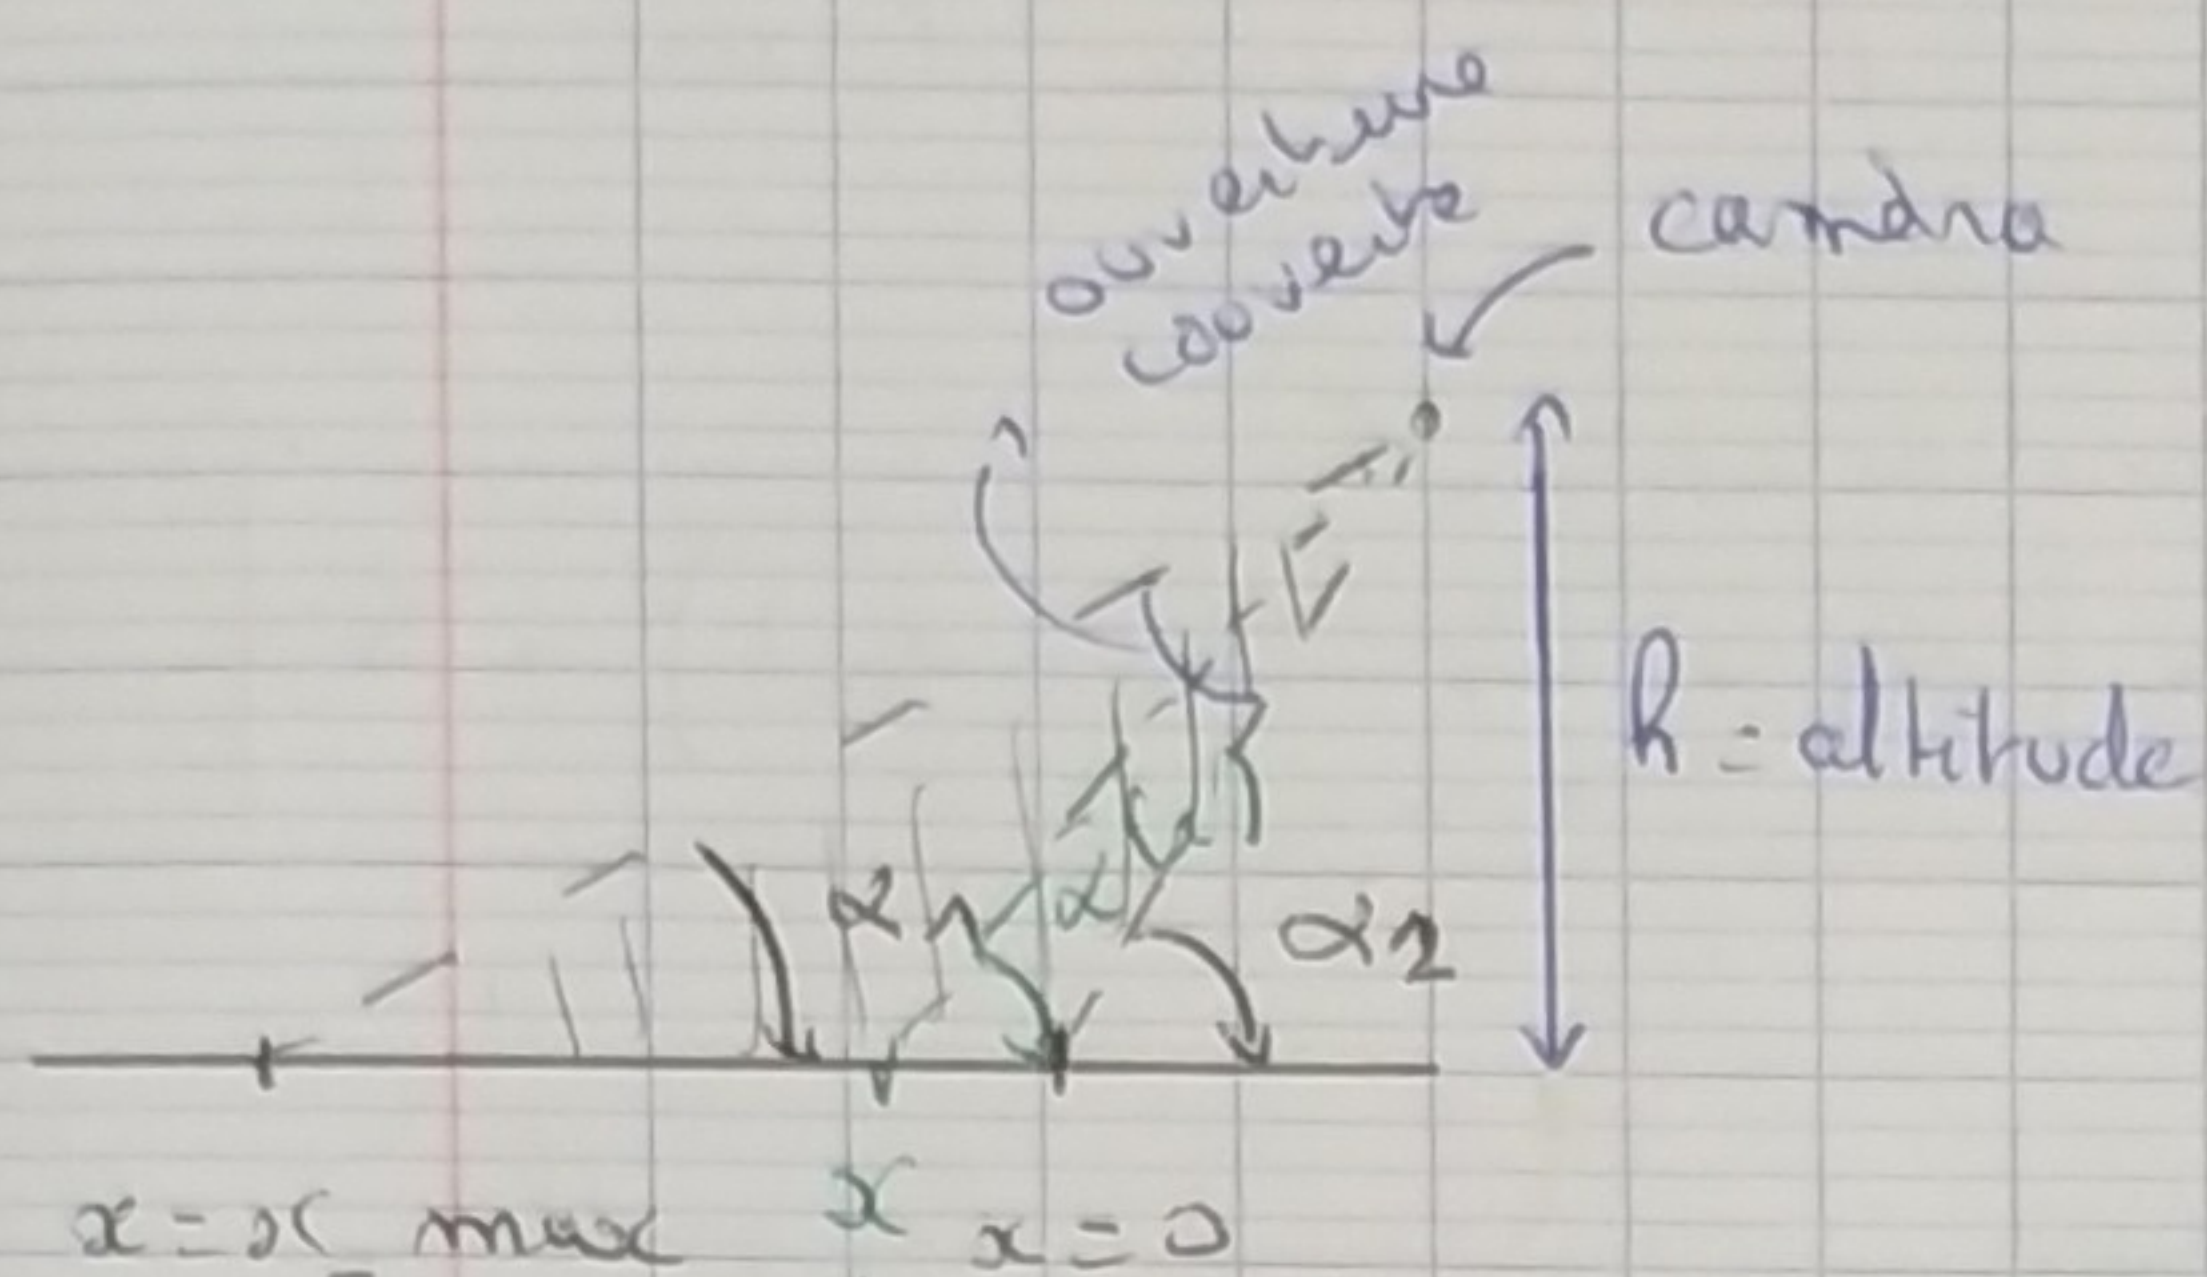 ouverture
couverte
caméra
h = altitude
α1
α
α2
x = x_max
x
x = 0